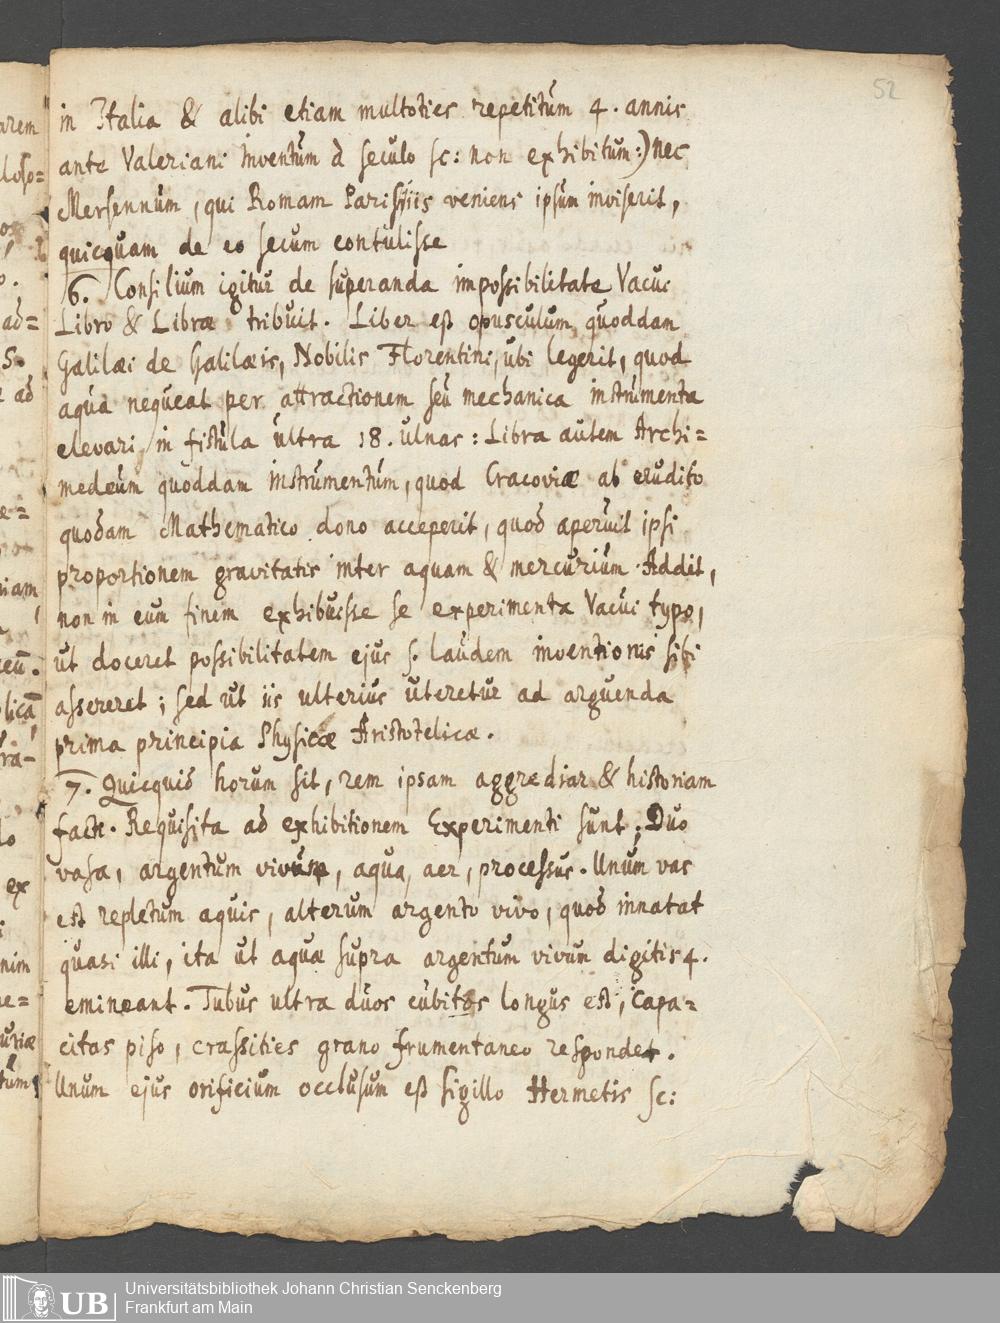 52
in Italia & alibi etiam multoties repetitúm 4. annis
ante Valeriani inventúm à seculo sc: non exhibitum:) nec
Mersennúm, qui Romam Parisiis veniens ipsúm inviserit,
quicquam de eo secum contulisse
6. Consilium igitur de superanda impossibilitate Vacui
Libro & Libræ tribuit. Liber est opusculum quoddam
Galilæi de Galilæis, Nobilis Florentini, ubi legerit, quod
aqua nequeat per attractionem seú mechanica instrúmenta
elevari in fistúla últra 18. ulnas: Libra autem Archi=
medeúm quoddam instrúmentúm, quod Cracoviæ ab erudito
quodam Mathematico dono acceperit, quod aperúit ipsi
proportionem gravitatis inter aquam & mercuriúm. Addit,
non in eum finem exhibuisse se experimenta Vacúi typo,
út doceret possibilitatem ejus s. laúdem inventionis sibi
assereret; sed út iis ulterius úteretur ad arguenda
prima principia Physicæ Aristotelicæ.
7. Quicquid horum sit, rem ipsam aggrediar & historiam
facti. Requisita ad exhibitionem Experimenti sunt; Duo
vasa, argentum vivúm, aqua, aer, processus. Unúm vas
est repletúm aquis, alterum argento vivo, quod innatat
quasi illi, ita út aquæ supra argentúm vivúm digitis 4.
emineant. Tubus ultra dúos cúbitos longús est, capa=
citas piso, crassities grano frumentaneo respondet.
Unum ejus orificium occlusum est sigillo Hermetis sc:
arem
loso=
ad=
5.
ad
e=
niam
eū.
licā
ra-
lo
ex
nim
ne=
uriæ
túm
UB
Universitätsbibliothek Johann Christian Senckenberg
Frankfurt am Main